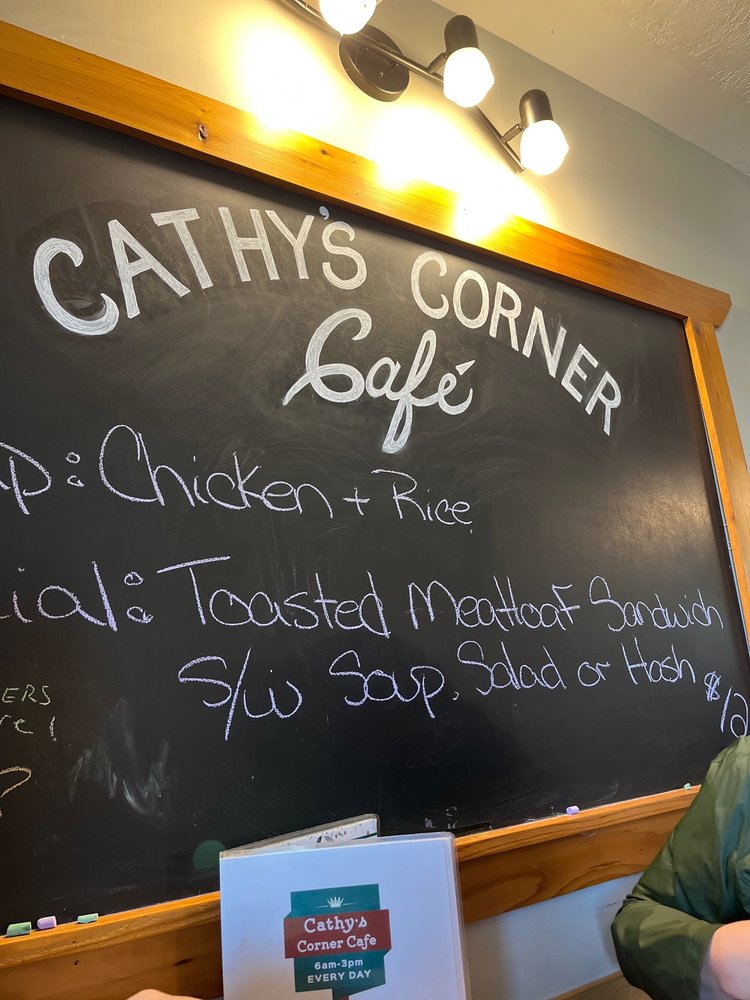 CATHY'S CORNER
Café
up: Chicken + Rice
cial: Toasted Meatloaf Sandwich
s/w Soup, Salad or Hash $12
ERS
re!
?
Cathy's
Corner Cafe
6am-3pm
EVERY DAY